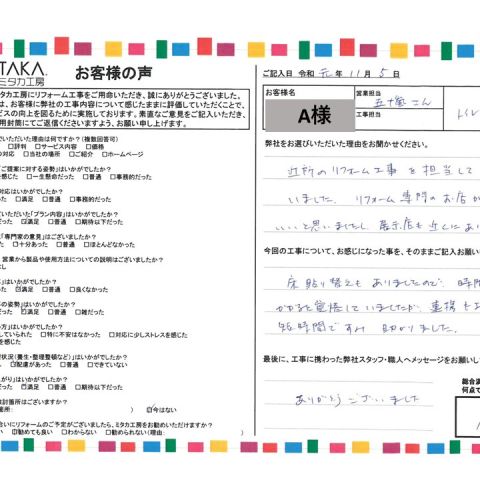 TAKA
ミタカ工房
お客様の声
ミタカ工房にリフォーム工事をご用命いただき、誠にありがとうございました。
は、お客様に弊社の工事内容について感じたままに評価していただくことで、
ビスの向上を図るために実施しております。素直なご意見をご記入いただき、
用封筒にてご返信くださいますよう、お願い申し上げます。
でいただいた理由は何ですか？（複数回答可）
□評判 □サービス内容 □価格
の対応 □当社の場所 □ご紹介 □ホームページ
「ご提案に対する姿勢」はいかがでしたか？
を感じた □一生懸命だった □普通 □事務的だった
対応はいかがでしたか？
った □満足 □普通 □事務的だった
ていただいた「プラン内容」はいかがでしたか？
った ☑満足 □普通 □期待以下だった
「専門家の意見」はございましたか？
た □十分あった □普通 □ほとんどなかった
営業から製品や使用方法についての説明はございましたか？
はいかがでしたか？
った ☑満足 □普通 □良くなかった
の姿勢」はいかがでしたか？
った ☑満足 □普通 □雑だった
い」はいかがでしたか？
していられた □特に不安はなかった □対応に少しストレスを感じた
を感じた
状況（養生・整理整頓など）」はいかがでしたか？
□配慮があった □普通 □できていない
がり」はいかがでしたか？
った ☑満足 □普通 □期待以下だった
検討箇所はございますか？
箇所： ） ☑今はない
合いにリフォームのご予定がございましたら、ミタカ工房をお勧めいただけますか？
い ☑勧めても良い □わからない □勧められない（理由： ）
ご記入日 令和 元 年 11 月 5 日
お客様名
A様
営業担当
五十嵐さん
工事担当
トイレ
弊社をお選びいただいた理由をお聞かせください。
近所のリフォーム工事を担当して
いました。リフォーム専門のお店が
いいと思いましたし 展示店も近くにあり
今回の工事について、お感じになった事を、そのままご記入お願い
床貼り替えもありましたので、時間
かかると覚悟していましたが、
短時間ですみ 助かりました。
最後に、工事に携わった弊社スタッフ・職人へメッセージをお願いし
ありがとうございました
総合満
何点で